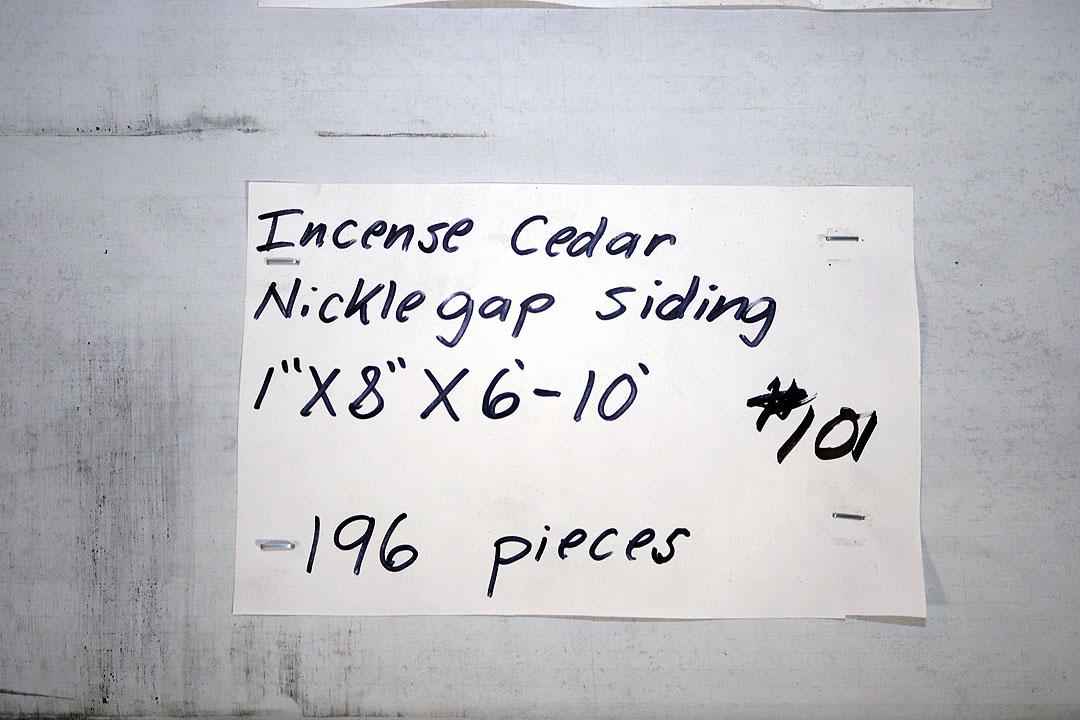 Incense Cedar
Nickle gap siding
1" X 8" X 6'-10'
#101
196 pieces